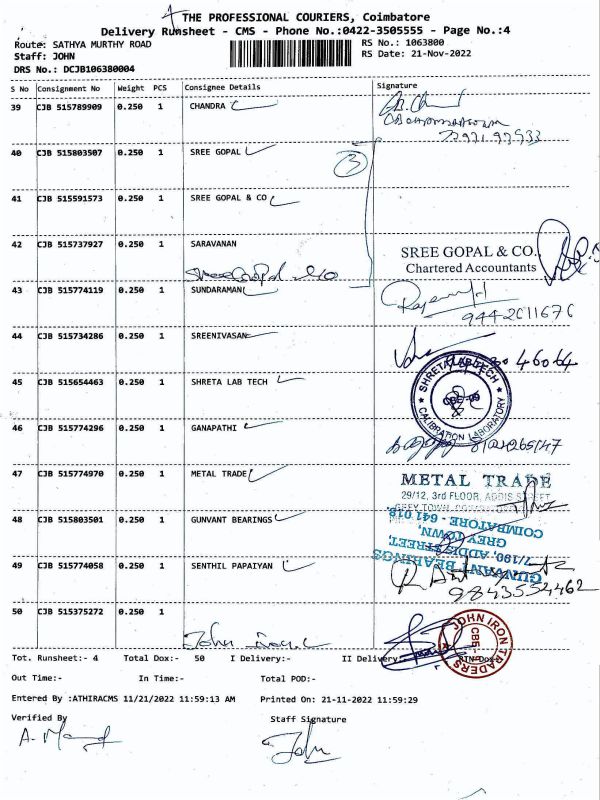 THE PROFESSIONAL COURIERS, Coimbatore
Delivery Runsheet - CMS - Phone No.:0422-3505555 - Page No.:4
Route: SATHYA MURTHY ROAD
RS No.: 1063800
Staff: JOHN
RS Date: 21-Nov-2022
DRS No.: DCJB106380004
S No Consignment No Weight PCS Consignee Details Signature
39 CJB 515789909 0.250 1 CHANDRA
40 CJB 515803507 0.250 1 SREE GOPAL
3
41 CJB 515591573 0.250 1 SREE GOPAL & CO
42 CJB 515737927 0.250 1 SARAVANAN
SREE GOPAL & CO.,
Chartered Accountants
Sree Gopal & co
43 CJB 515774119 0.250 1 SUNDARAMAN
9442011676
44 CJB 515734286 0.250 1 SREENIVASAN
45 CJB 515654463 0.250 1 SHRETA LAB TECH
SHRETA LAB TECH
CBE-09
CALIBRATION LABORATORY
46 CJB 515774296 0.250 1 GANAPATHI
47 CJB 515774970 0.250 1 METAL TRADE
METAL TRADE
29/12, 3rd FLOOR, ADDIS STREET
GREY TOWN,
48 CJB 515803501 0.250 1 GUNVANT BEARINGS
GUNVANT BEARINGS
7/190, ADDIS STREET,
GREY TOWN,
COIMBATORE - 641 018.
49 CJB 515774058 0.250 1 SENTHIL PAPAIYAN
9843554462
50 CJB 515375272 0.250 1
John
JOHN IRON TRADERS
CBE
Tot. Runsheet:- 4 Total Dox:- 50 I Delivery:- II Delivery:
Out Time:- In Time:- Total POD:-
Entered By :ATHIRACMS 11/21/2022 11:59:13 AM Printed On: 21-11-2022 11:59:29
Verified By Staff Signature
John